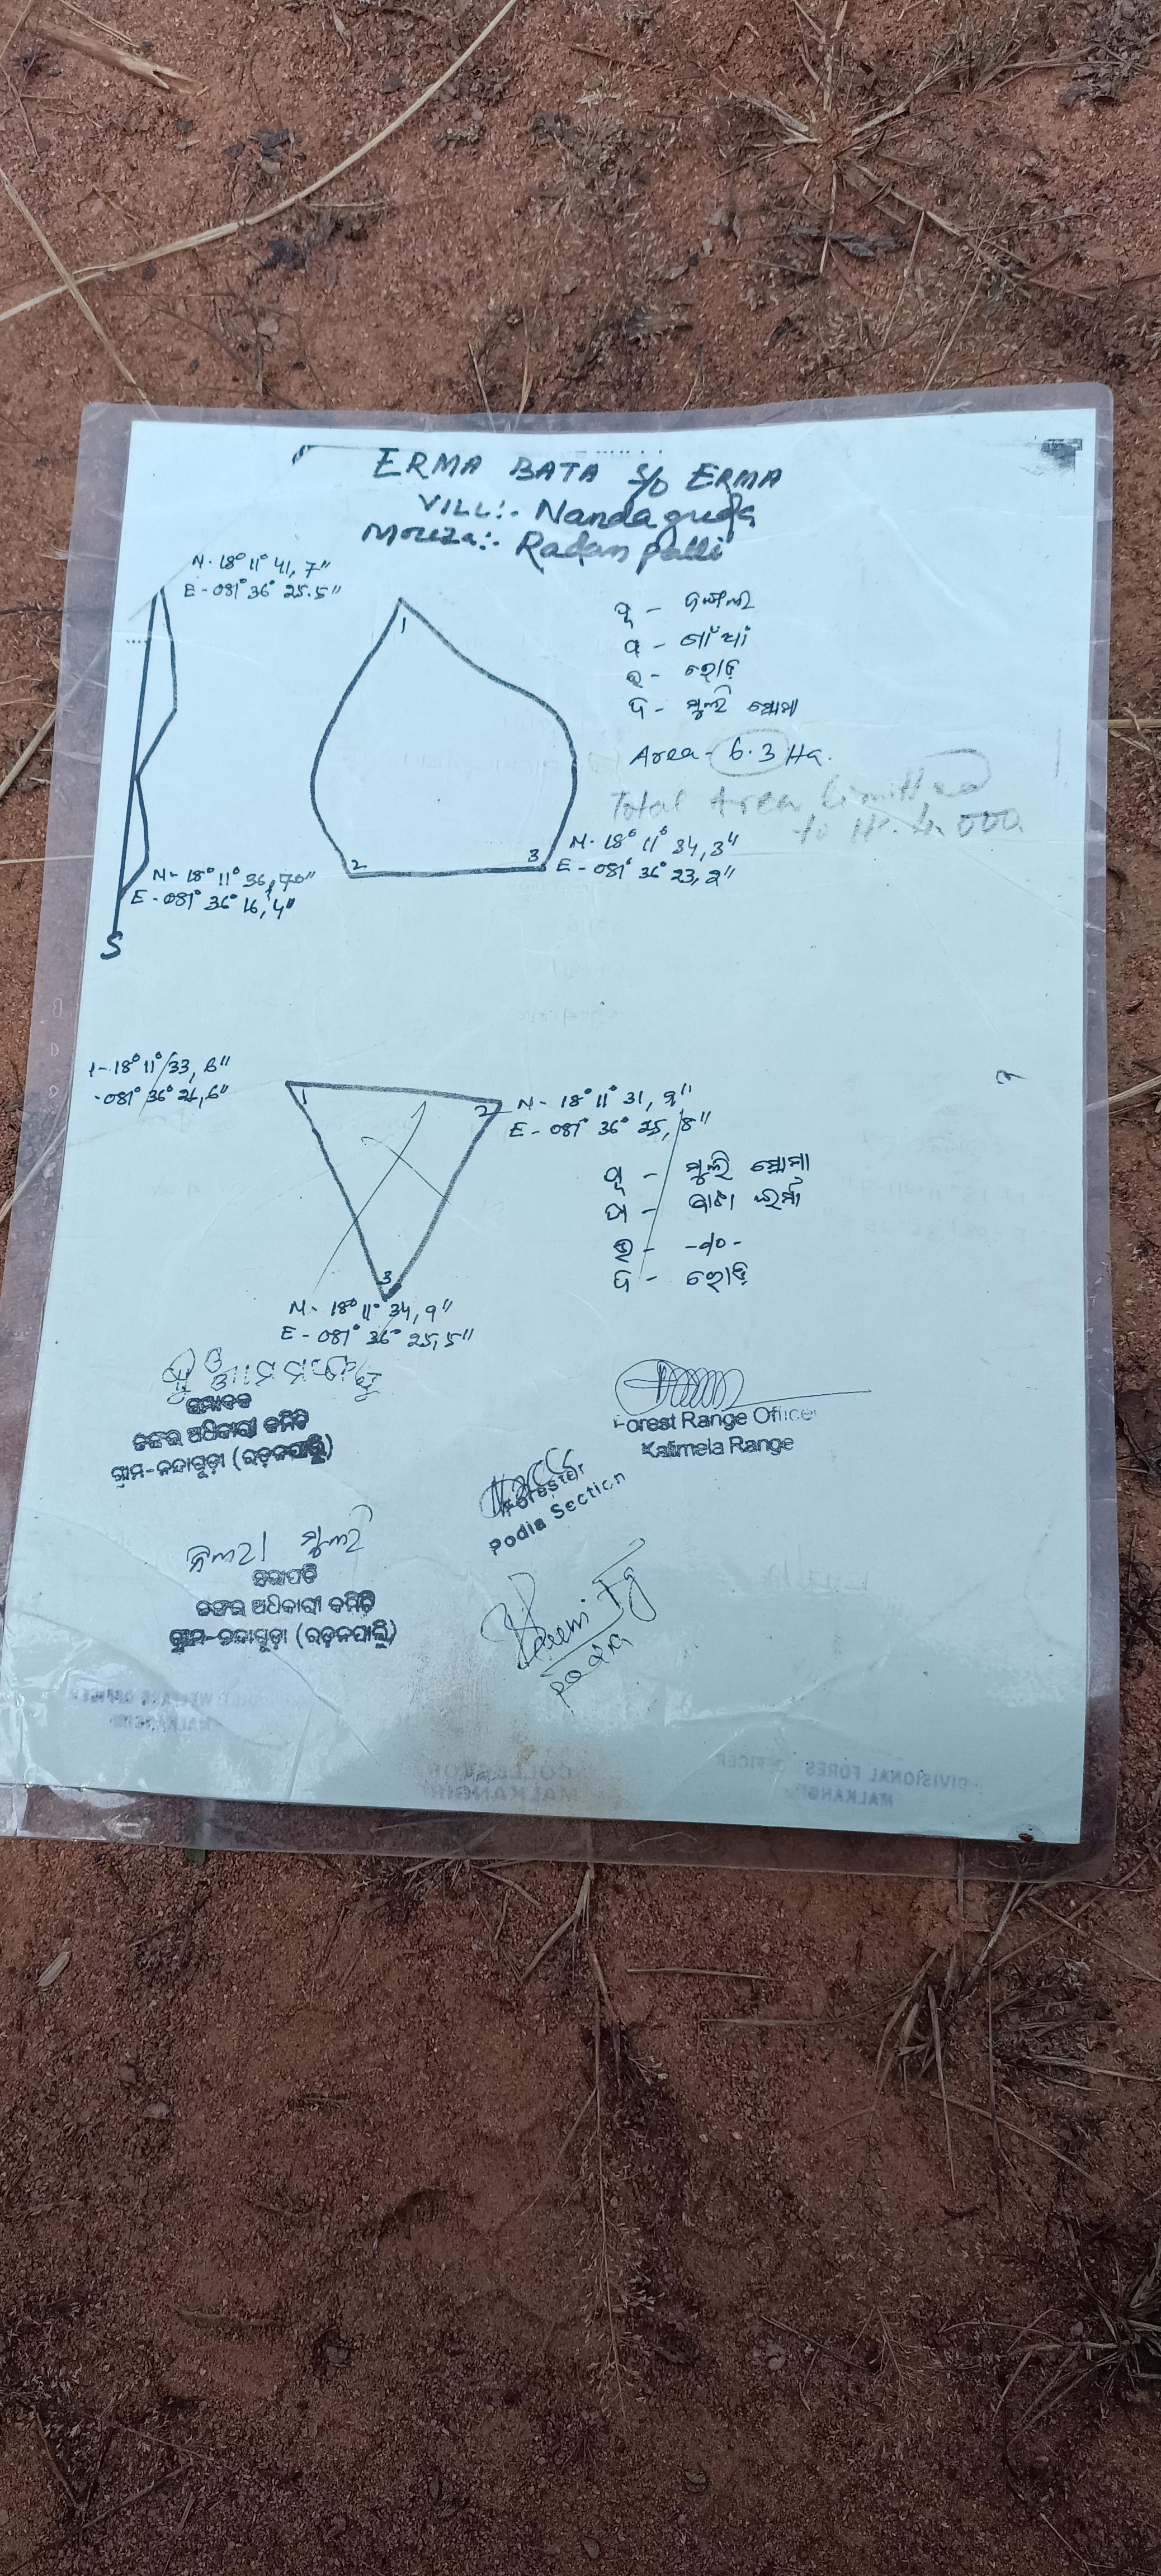 ERMA BATA S/O ERMA
VILL:- Nandaguda
Mouza:- Radan palli
N- 18° 11° 41,7"
E- 081° 36° 25.5"
1
ପୂ - ଜଙ୍ଗଲ
ଉ - ରୋଡ଼
ଦ - ମୁଲି
Area- 6.3 Ha.
Total Area limitted
to H. 4.000
2
3
N- 18° 11° 34,3"
E- 081° 36° 23,2"
N- 18° 11° 36,70"
E- 081° 36° 16,4"
S
18° 11° 33,6"
-081° 36°
1
2
N- 18° 11° 31,9"
E- 081° 36° 25,8"
ପୂ - ମୁଲି
ଉ - -do-
ଦ - ରୋଡ଼
3
N- 18° 11° 34,9"
E- 081° 36° 25,5"
ସମ୍ପାଦକ
ଜଙ୍ଗଲ ଅଧିକାରୀ କମିଟି
ଗ୍ରାମ-ନନ୍ଦାଗୁଡ଼ା (ରଡ଼ନପାଲ୍ଲି)
Forest Range Officer
Kalimela Range
Forester
Podia Section
ମୁଲି
ସଭାପତି
ଜଙ୍ଗଲ ଅଧିକାରୀ କମିଟି
ଗ୍ରାମ-ନନ୍ଦାଗୁଡ଼ା (ରଡ଼ନପାଲ୍ଲି)
podia
WELFARE OFFICER
MALKANGIRI
COLLECTOR
MALKANGIRI
DIVISIONAL FOREST OFFICER
MALKANGIRI